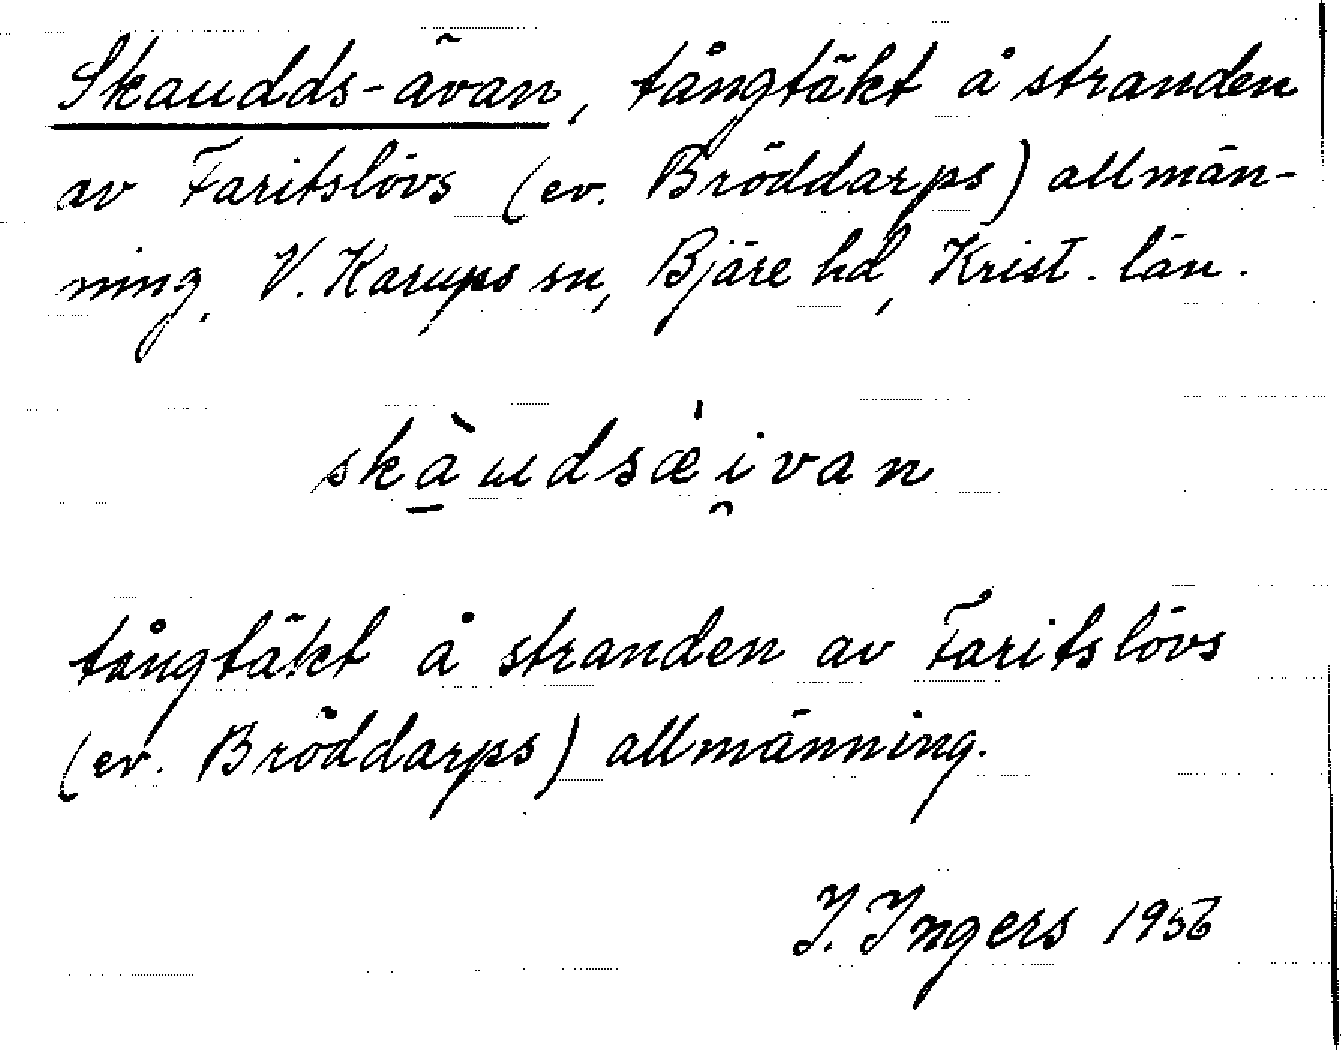 Skaudds-ävan, tångtäkt å stranden
av Faritslövs (ev. Bröddarps) allmän-
ning, V. Karups sn, Bjäre hd, Krist. län.
skàu̯dsæ̍i̯van
tångtäkt å stranden av Faritslövs
(ev. Bröddarps) allmänning.
I. Ingers 1956